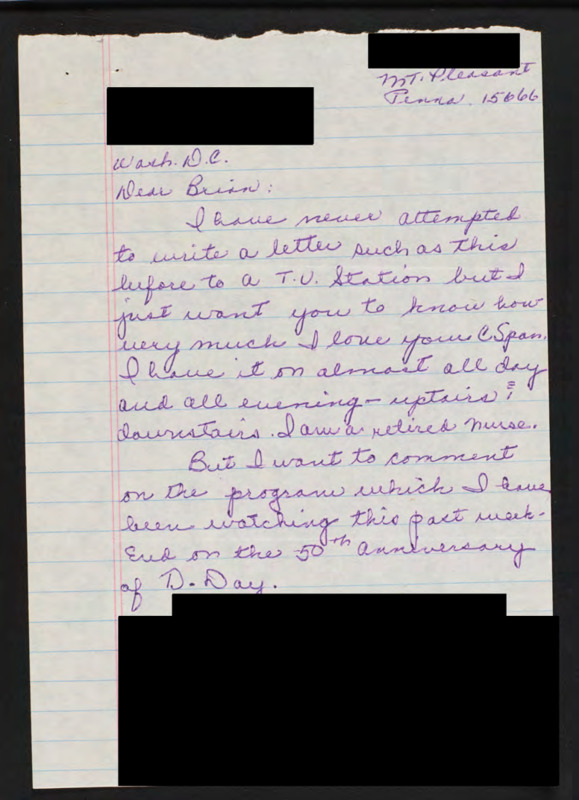 Mt. Pleasant
Penna. 15666
Wash. D.C.
Dear Brian:
I have never attempted
to write a letter such as this
before to a T.V. Station but I
just want you to know how
very much I love your C Span.
I have it on almost all day
and all evening - uptairs &
downstairs. I am a retired nurse.
But I want to comment
on the program which I have
been watching this past week-
End on the 50th anniversary
of D-Day.